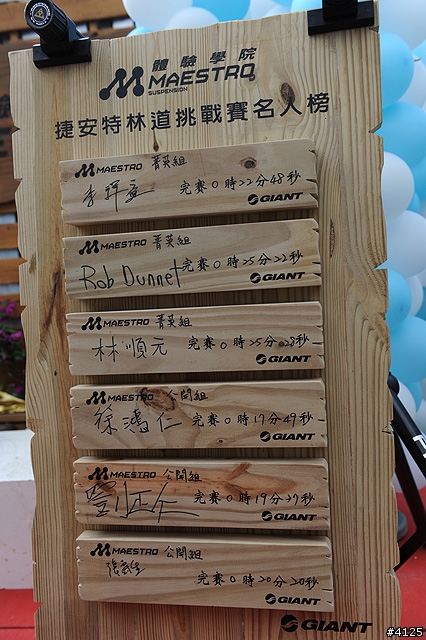 體驗學院
MAESTRO
SUSPENSION
捷安特林道挑戰賽名人榜
MAESTRO 菁英組
李 完賽0時22分48秒
GIANT
MAESTRO 菁英組
Rob Dunnet 完賽0時25分22秒
GIANT
MAESTRO 菁英組
林順元 完賽0時25分28秒
GIANT
MAESTRO 公開組
徐鴻仁 完賽0時17分49秒
GIANT
MAESTRO 公開組
完賽0時19分37秒
GIANT
MAESTRO 公開組
完賽0時20分20秒
GIANT
GIANT
#4125